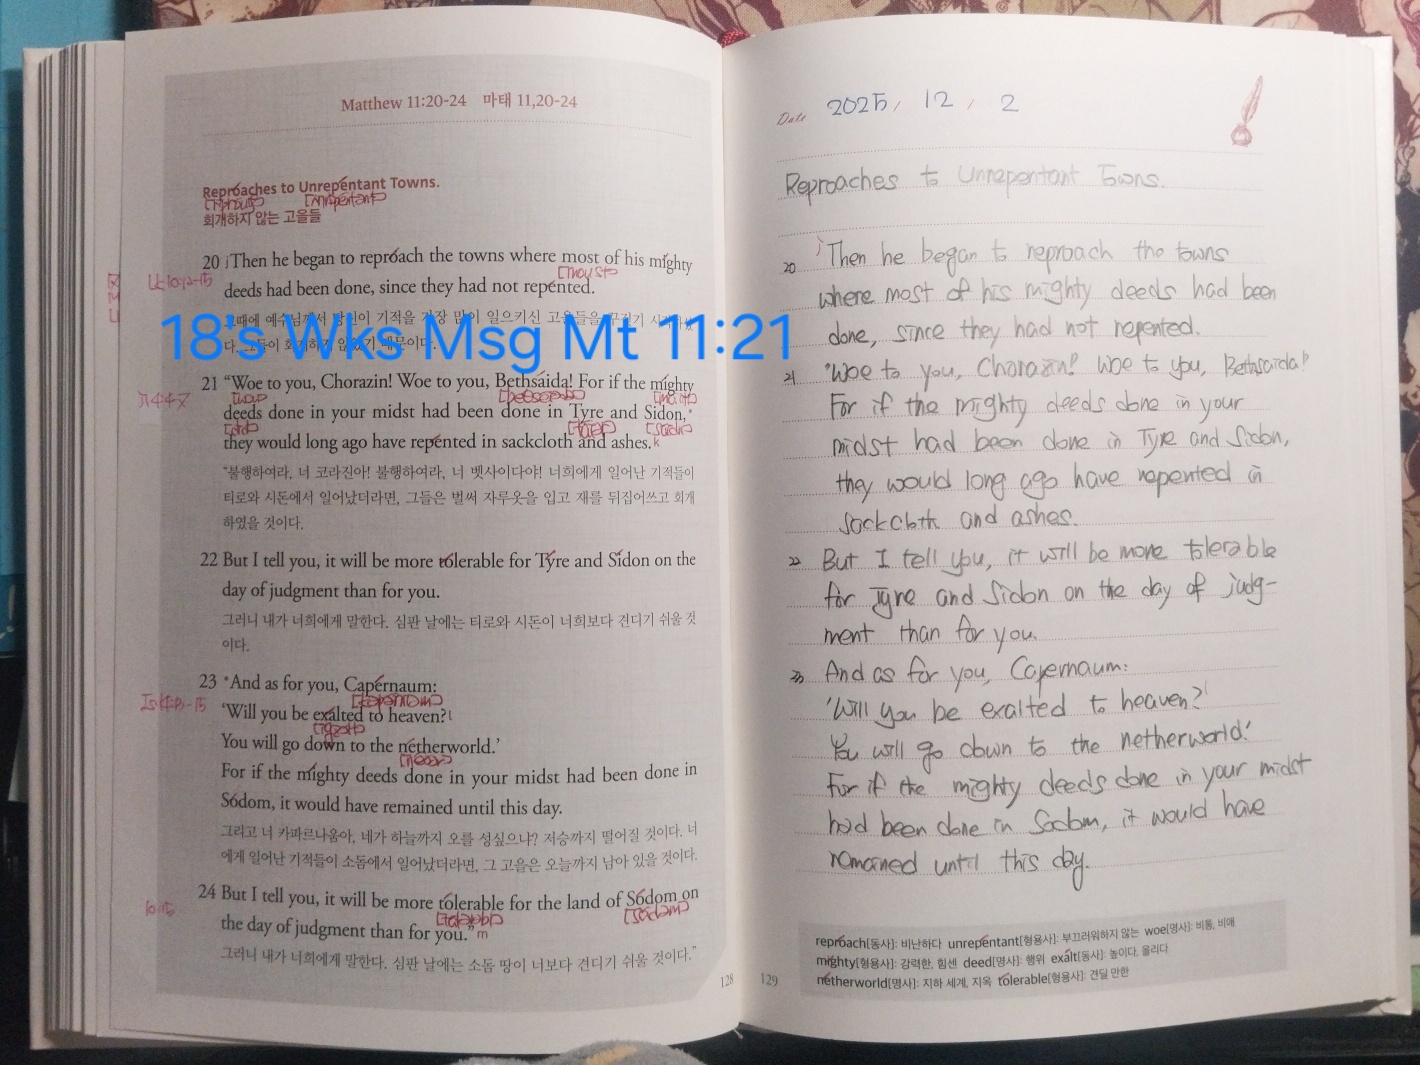 Matthew 11:20-24 마태 11,20-24
Reproaches to Unrepentant Towns.
회개하지 않는 고을들
20 Then he began to reproach the towns where most of his mighty
deeds had been done, since they had not repented.
그때에 예수님께서 당신이 기적을 가장 많이 일으키신 고을들을 꾸짖기 시작하셨
다. 그들이 회개하지 않았기 때문이다.
18's Wks Msg Mt 11:21
21 “Woe to you, Chorazin! Woe to you, Bethsaida! For if the mighty
deeds done in your midst had been done in Tyre and Sidon,*
they would long ago have repented in sackcloth and ashes.k
“불행하여라, 너 코라진아! 불행하여라, 너 벳사이다야! 너희에게 일어난 기적들이
티로와 시돈에서 일어났더라면, 그들은 벌써 자루옷을 입고 재를 뒤집어쓰고 회개
하였을 것이다.
22 But I tell you, it will be more tolerable for Tyre and Sidon on the
day of judgment than for you.
그러니 내가 너희에게 말한다. 심판 날에는 티로와 시돈이 너희보다 견디기 쉬울 것
이다.
23 *And as for you, Capernaum:
‘Will you be exalted to heaven?l
You will go down to the netherworld.’
For if the mighty deeds done in your midst had been done in
Sodom, it would have remained until this day.
그리고 너 카파르나움아, 네가 하늘까지 오를 성싶으냐? 저승까지 떨어질 것이다. 너
에게 일어난 기적들이 소돔에서 일어났더라면, 그 고을은 오늘까지 남아 있을 것이다.
24 But I tell you, it will be more tolerable for the land of Sodom on
the day of judgment than for you.”m
그러니 내가 너희에게 말한다. 심판 날에는 소돔 땅이 너보다 견디기 쉬울 것이다.”
128
Date 2025, 12, 2
Reproaches to Unrepentant Towns.
20 Then he began to reproach the towns
where most of his mighty deeds had been
done, since they had not repented.
21 "Woe to you, Chorazin! Woe to you, Bethsaida!
For if the mighty deeds done in your
midst had been done in Tyre and Sidon,
they would long ago have repented in
sackcloth and ashes.
22 But I tell you, it will be more tolerable
for Tyre and Sidon on the day of judg-
ment than for you.
23 And as for you, Capernaum:
'Will you be exalted to heaven?
You will go down to the netherworld.'
For if the mighty deeds done in your midst
had been done in Sodom, it would have
remained until this day.
reproach[동사]: 비난하다 unrepentant[형용사]: 부끄러워하지 않는 woe[명사]: 비통, 비애
mighty[형용사]: 강력한, 힘센 deed[명사]: 행위 exalt[동사]: 높이다, 올리다
netherworld[명사]: 지하 세계, 지옥 tolerable[형용사]: 견딜 만한
129